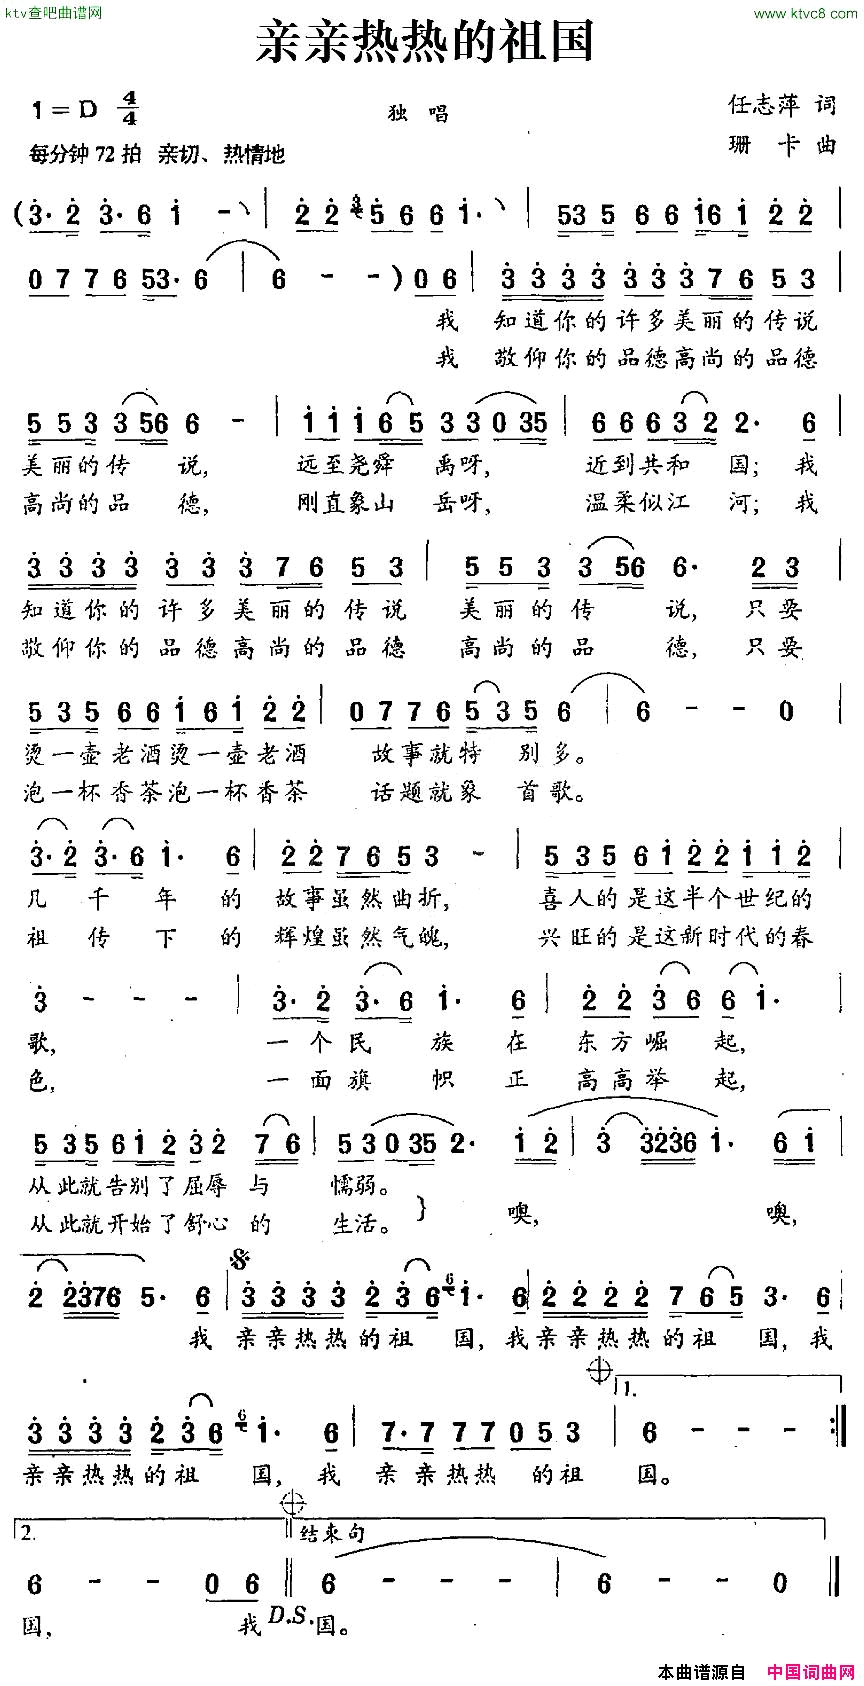 ktv查吧曲谱网
www.ktvc8.com
亲亲热热的祖国
1=D 4/4
独 唱
任志萍 词
每分钟72拍 亲切、热情地
珊 卡 曲
(3·2 3·6 1 - | 2 2 3 5 6 6 1· | 53 5 6 6 16 1 2 2
0 7 7 6 53· 6 | 6 - - ) 0 6 | 3 3 3 3 3 3 3 7 6 5 3
我 知道你的许多美丽的传说
我 敬仰你的品德高尚的品德
5 5 3 3 56 6 - | 1 1 1 6 5 3 3 0 35 | 6 6 6 3 2 2· 6
美丽的传 说, 远至尧舜 禹呀, 近到共和 国; 我
高尚的品 德, 刚直象山 岳呀, 温柔似江 河; 我
3 3 3 3 3 3 3 7 6 5 3 | 5 5 3 3 56 6· 2 3
知道你的许多美丽的传说 美丽的传 说, 只要
敬仰你的品德高尚的品德 高尚的品 德, 只要
5 3 5 6 6 1 6 1 2 2 | 0 7 7 6 5 3 5 6 | 6 - - 0
烫一壶老酒烫一壶老酒 故事就特 别多。
泡一杯香茶泡一杯香茶 话题就象 首歌。
3·2 3·6 1· 6 | 2 2 7 6 5 3 - | 5 3 5 6 1 2 2 1 1 2
几 千 年 的 故事虽然曲折, 喜人的是这半个世纪的
祖 传 下 的 辉煌虽然气魄, 兴旺的是这新时代的春
3 - - - | 3·2 3·6 1· 6 | 2 2 3 6 6 1·
歌, 一个民 族 在 东方崛 起,
色, 一面旗 帜 正 高高举 起,
5 3 5 6 1 2 3 2 7 6 | 5 3 0 35 2· 1 2 | 3 3236 1· 6 1
从此就告别了屈辱 与 懦弱。
从此就开始了舒心 的 生活。 } 噢, 噢,
2 2376 5· 6 | 3 3 3 3 2 3 6 6 1· 6 | 2 2 2 2 7 6 5 3· 6
我 亲亲热热的祖 国, 我亲亲热热的祖 国, 我
1.
3 3 3 3 2 3 6 6 1· 6 | 7·7 7 7 0 5 3 | 6 - - - :‖
亲亲热热的祖 国, 我 亲亲热热 的祖 国。
2. 结束句
6 - - 0 6 ‖ 6 - - - | 6 - - 0 ‖
国, 我 D.S. 国。
本曲谱源自 中国词曲网